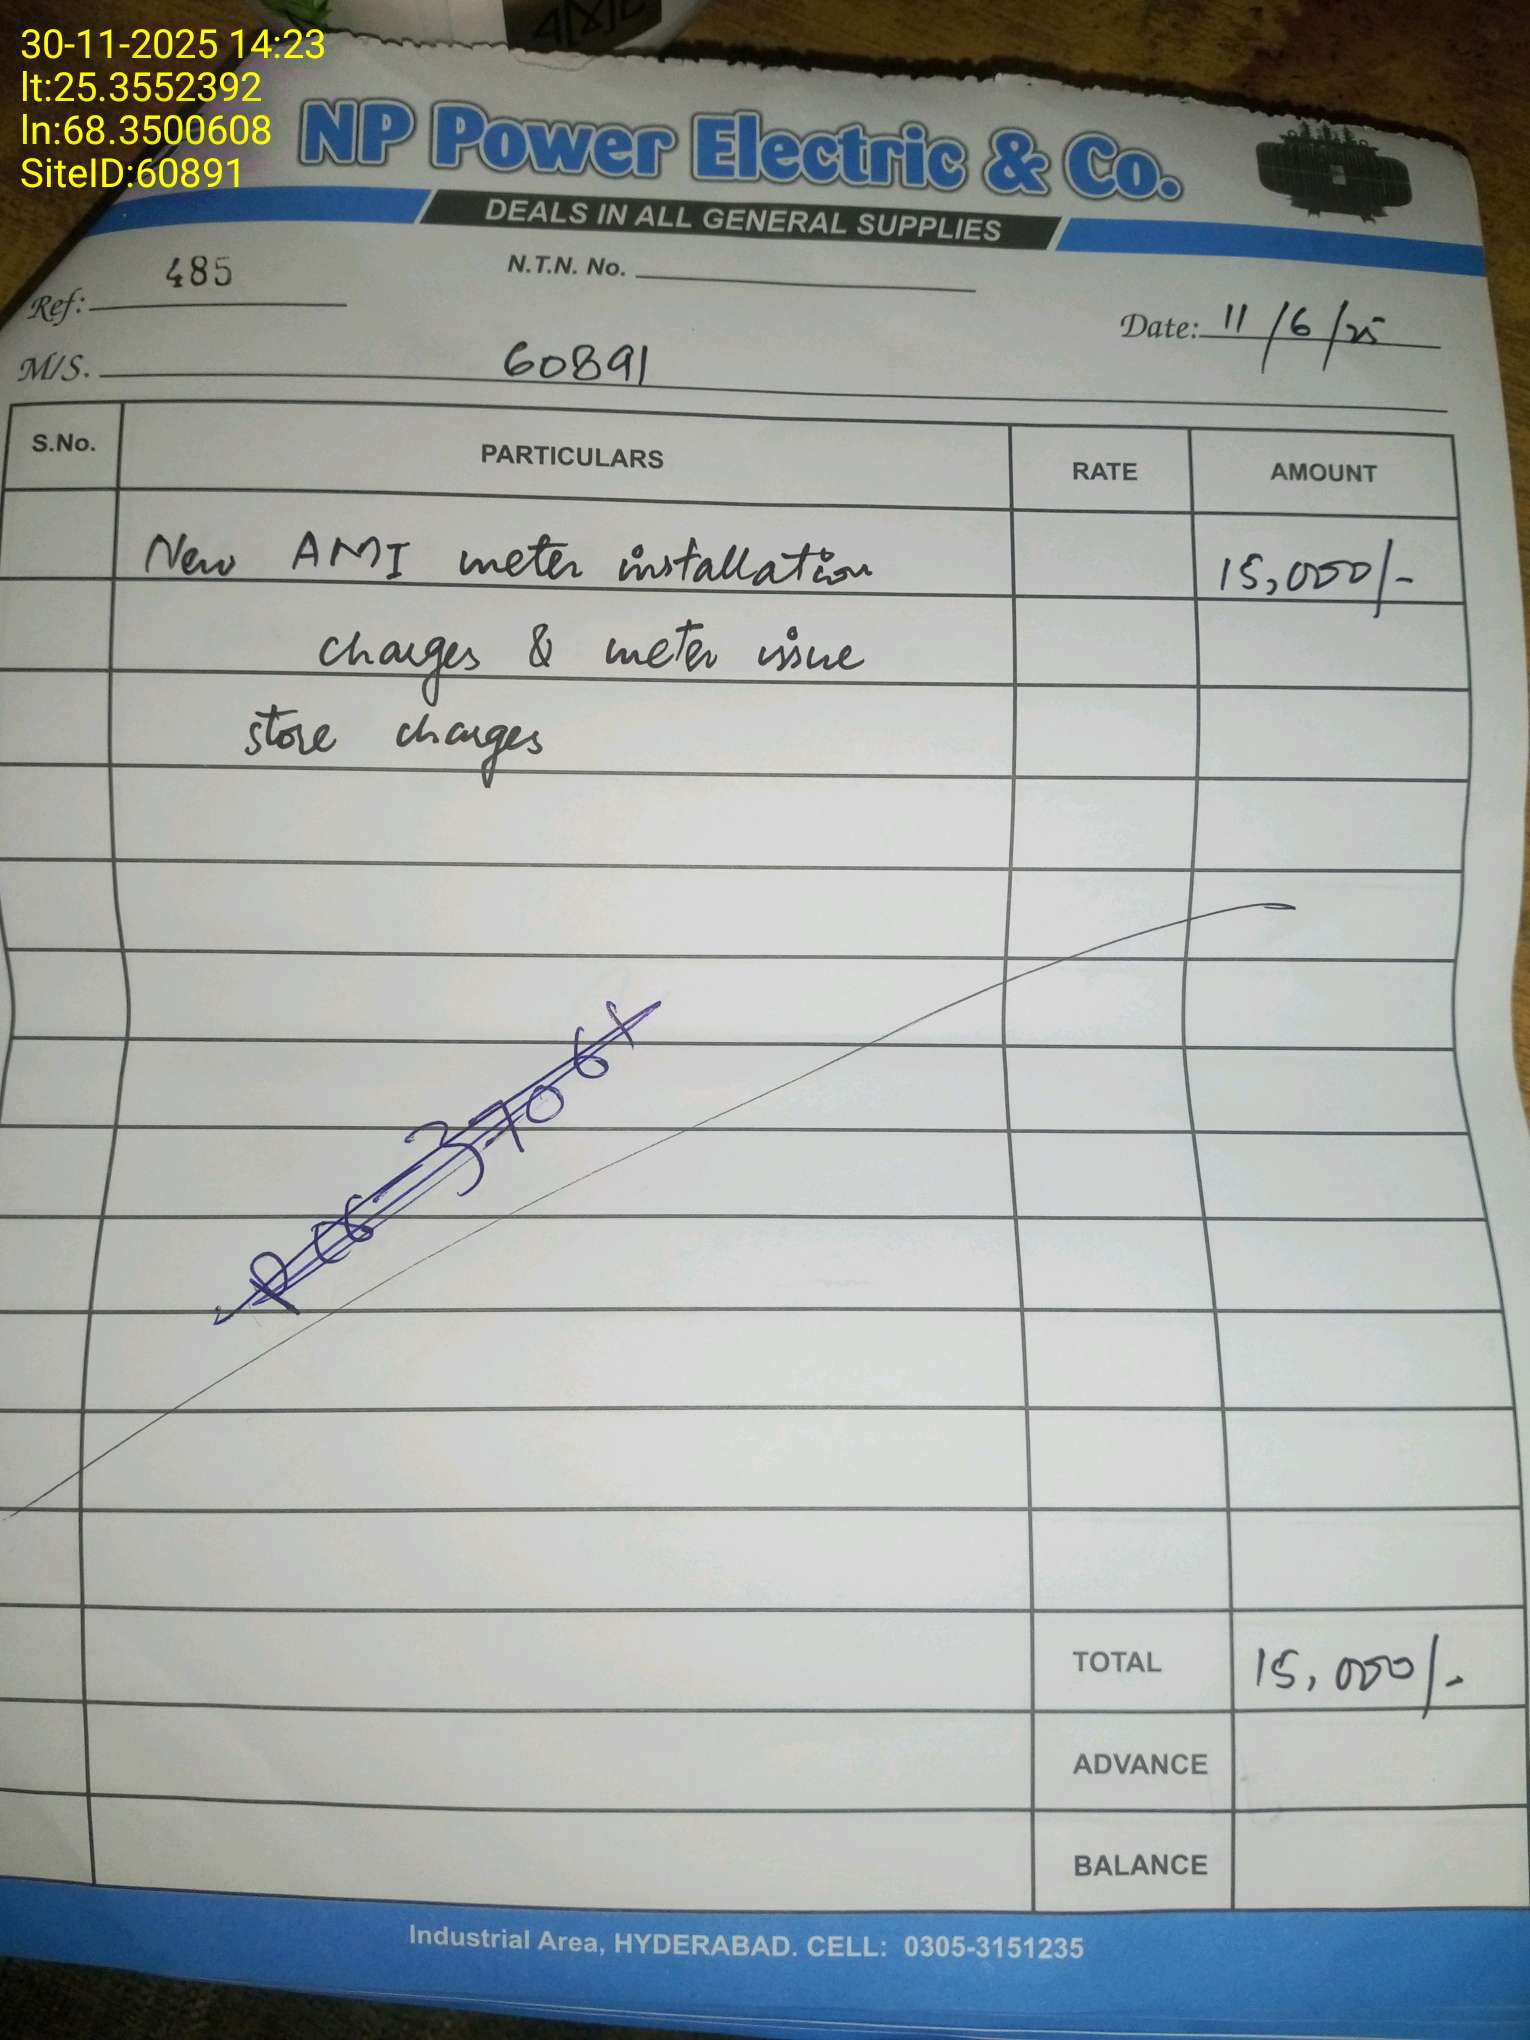 30-11-2025 14:23
lt:25.3552392
ln:68.3500608
SiteID:60891
NP Power Electric & Co.
DEALS IN ALL GENERAL SUPPLIES
Ref: 485
N.T.N. No.
Date: 11/6/25
M/S. 60891
S.No. PARTICULARS RATE AMOUNT
New AMI meter installation 15,000/-
charges & meter issue
store charges
TOTAL 15,000/-
ADVANCE
BALANCE
Industrial Area, HYDERABAD. CELL: 0305-3151235